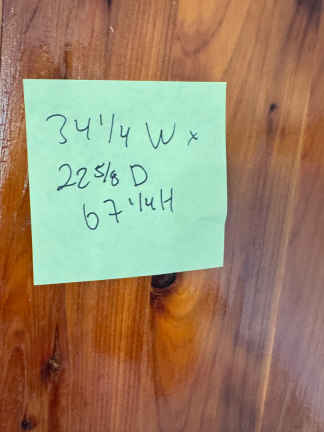 34 1/4 W x
22 5/8 D
67 1/4 H